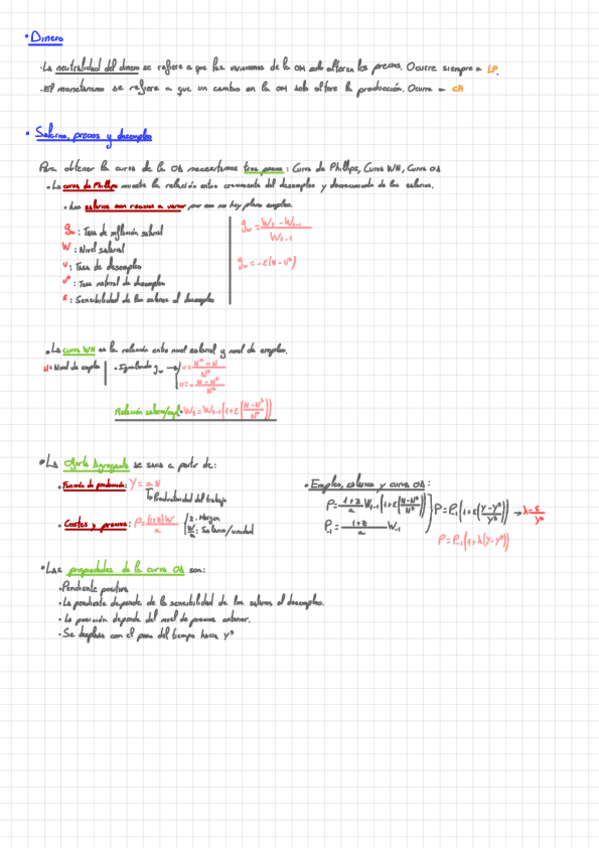 · Dinero
· La neutralidad del dinero se refiere a que las variaciones de la OM solo alteran los precios. Ocurre siempre a LP.
· El monetarismo se refiere a que un cambio en la OM solo altera la producción. Ocurre a CP
· Salarios, precios y desempleo
Para obtener la curva de la OA necesitamos tres pasos: Curva de Phillips, Curva WN, Curva OA
· La curva de Phillips muestra la relación entre crecimiento del desempleo y decrecimiento de los salarios.
· Los salarios son reacios a variar por eso no hay pleno empleo.
gw: Tasa de inflación salarial
W: Nivel salarial
u: Tasa de desempleo
u*: Tasa natural de desempleo
ε: Sensibilidad de los salarios al desempleo
gw = (Wt - Wt-1) / Wt-1
gw = -ε(u - u*)
· La curva WN es la relación entre nivel salarial y nivel de empleo.
N = Nivel de empleo
· Igualando gw → u = (N* - N) / N*
Relación salario/empl. · Wt = Wt-1(1+ε((N-N*)/N*))
· La Oferta Agregada se saca a partir de:
· Función de producción: Y = a·N
↳ Productividad del trabajo
· Costes y precios: P = (1+z)W / a
z: Margen
W/a: Salario/unidad
· Empleo, salarios y curva OA:
P = (1+z)/a W-1(1+ε((N-N*)/N*))
P-1 = (1+z)/a W-1
P = P-1(1+ε((Y-Y*)/Y*)) → λ = ε/Y*
P = P-1(1+λ(Y-Y*))
· Las propiedades de la curva OA son:
· Pendiente positiva
· La pendiente depende de la sensibilidad de los salarios al desempleo.
· La posición depende del nivel de precios anterior.
· Se desplaza con el paso del tiempo hacia Y*